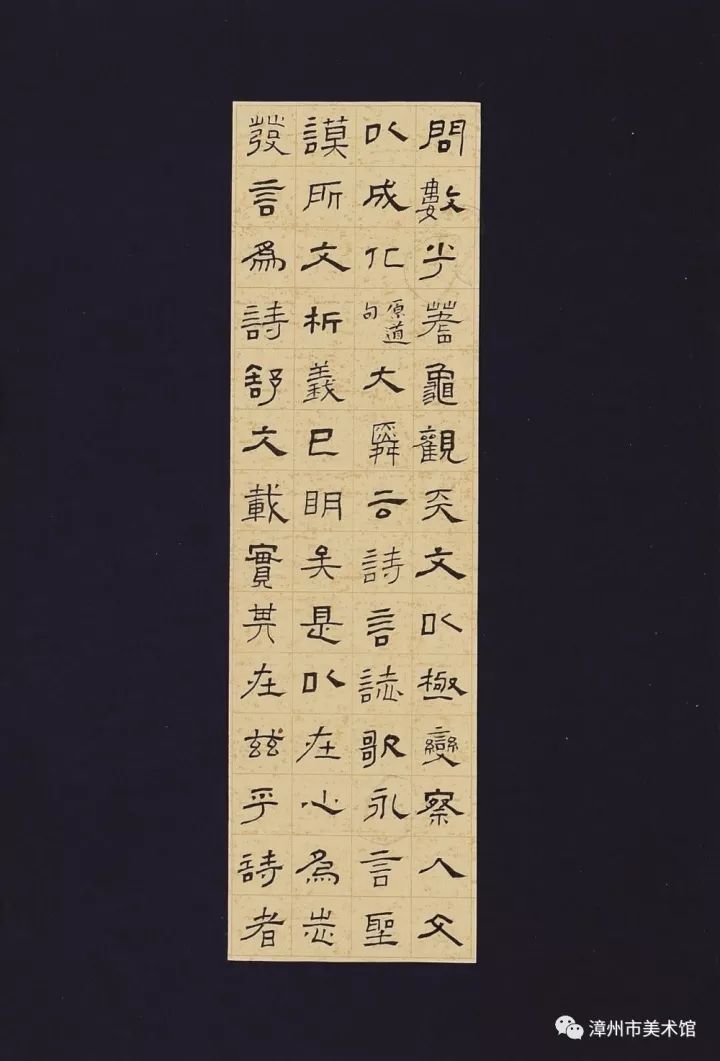 問數乎蓍龜觀天文以極變察人文
以成化原道句大舜云詩言誌歌永言聖
謨所文析義已明矣是以在心為志
發言為詩舒文載實其在茲乎詩者
漳州市美术馆